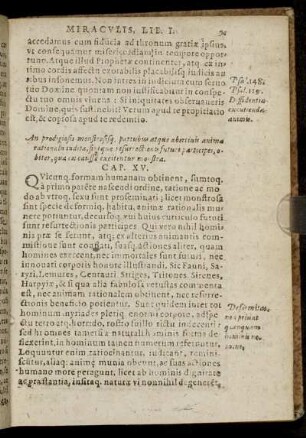 MIRACVLIS, LIB. I.
accedamus cum fiducia ad thronum gratiæ ipsius,
vt consequamur misericordiam in tempore oppor-
tuno. Atque illud Prophetæ continenter, atq; ex in-
timo cordis affectu exorabilis placabilisq; iudicis au-
ribus insonemus. Non intres in iudicium cum seruo
tuo Domine, quoniam non iustificabitur in conspe-
ctu tuo omnis viuens: Si iniquitates obseruaueris
Domine, quis sustinebit? Verum apud te propitiatio
est, & copiosa apud te redemtio.
Psal. 142.
Psal. 129.
Diffidentia
animis.
An prodigiosis monstrosisq; partubus atque abortiuis anima
rationalis indita, sintque resurrectionis futuri participes,
obiter, qua ex causa excitentur monstra.
CAP. XV.
QVicunq; formam humanam obtinent, sumtoq;
à primo parēte nascendi ordine, ratione ac mo-
do ab vtroq; sexu sunt proseminati; licet monstrosi
sint specie deformiq; habitu, anima rationali mune-
re potiuntur, obitoq; huius curriculo futuri
sunt resurrectionis participes. Qui vero nihil homi-
nis præ se ferunt, atq; ex alterius animantis com-
mistione sunt conflati, suasq; actiones aliter, quam
homines exercent, nec immortales sunt futuri, nec
innouati corporis honore illustrandi. Sic Fauni, Sa-
tyri, Lemures, Centauri, Striges, Tritones, Sirenes,
Harpyiæ, & si qua alia fabulosa vetustas commenta
est, nec animam rationalem obtinent, nec resurre-
ctionis beneficio potientur. Sunt quidem inter tot
hominum myriades pleriq; enormi corpore, adspe-
ctu tetro atq; horrido,
sed homines tamen, a naturalis ordinis serie de-
sciscerint, in hominum tamen numerum referuntur.
Loquuntur enim, ratiocinantur, iudicant, remini-
scuntur, aliaq; animæ munia obeunt, ac suas actiones
humano more peragunt, licet ab hominis dignitate
ac præstantia, insitaq; natura vi nonnihil degenerēt,